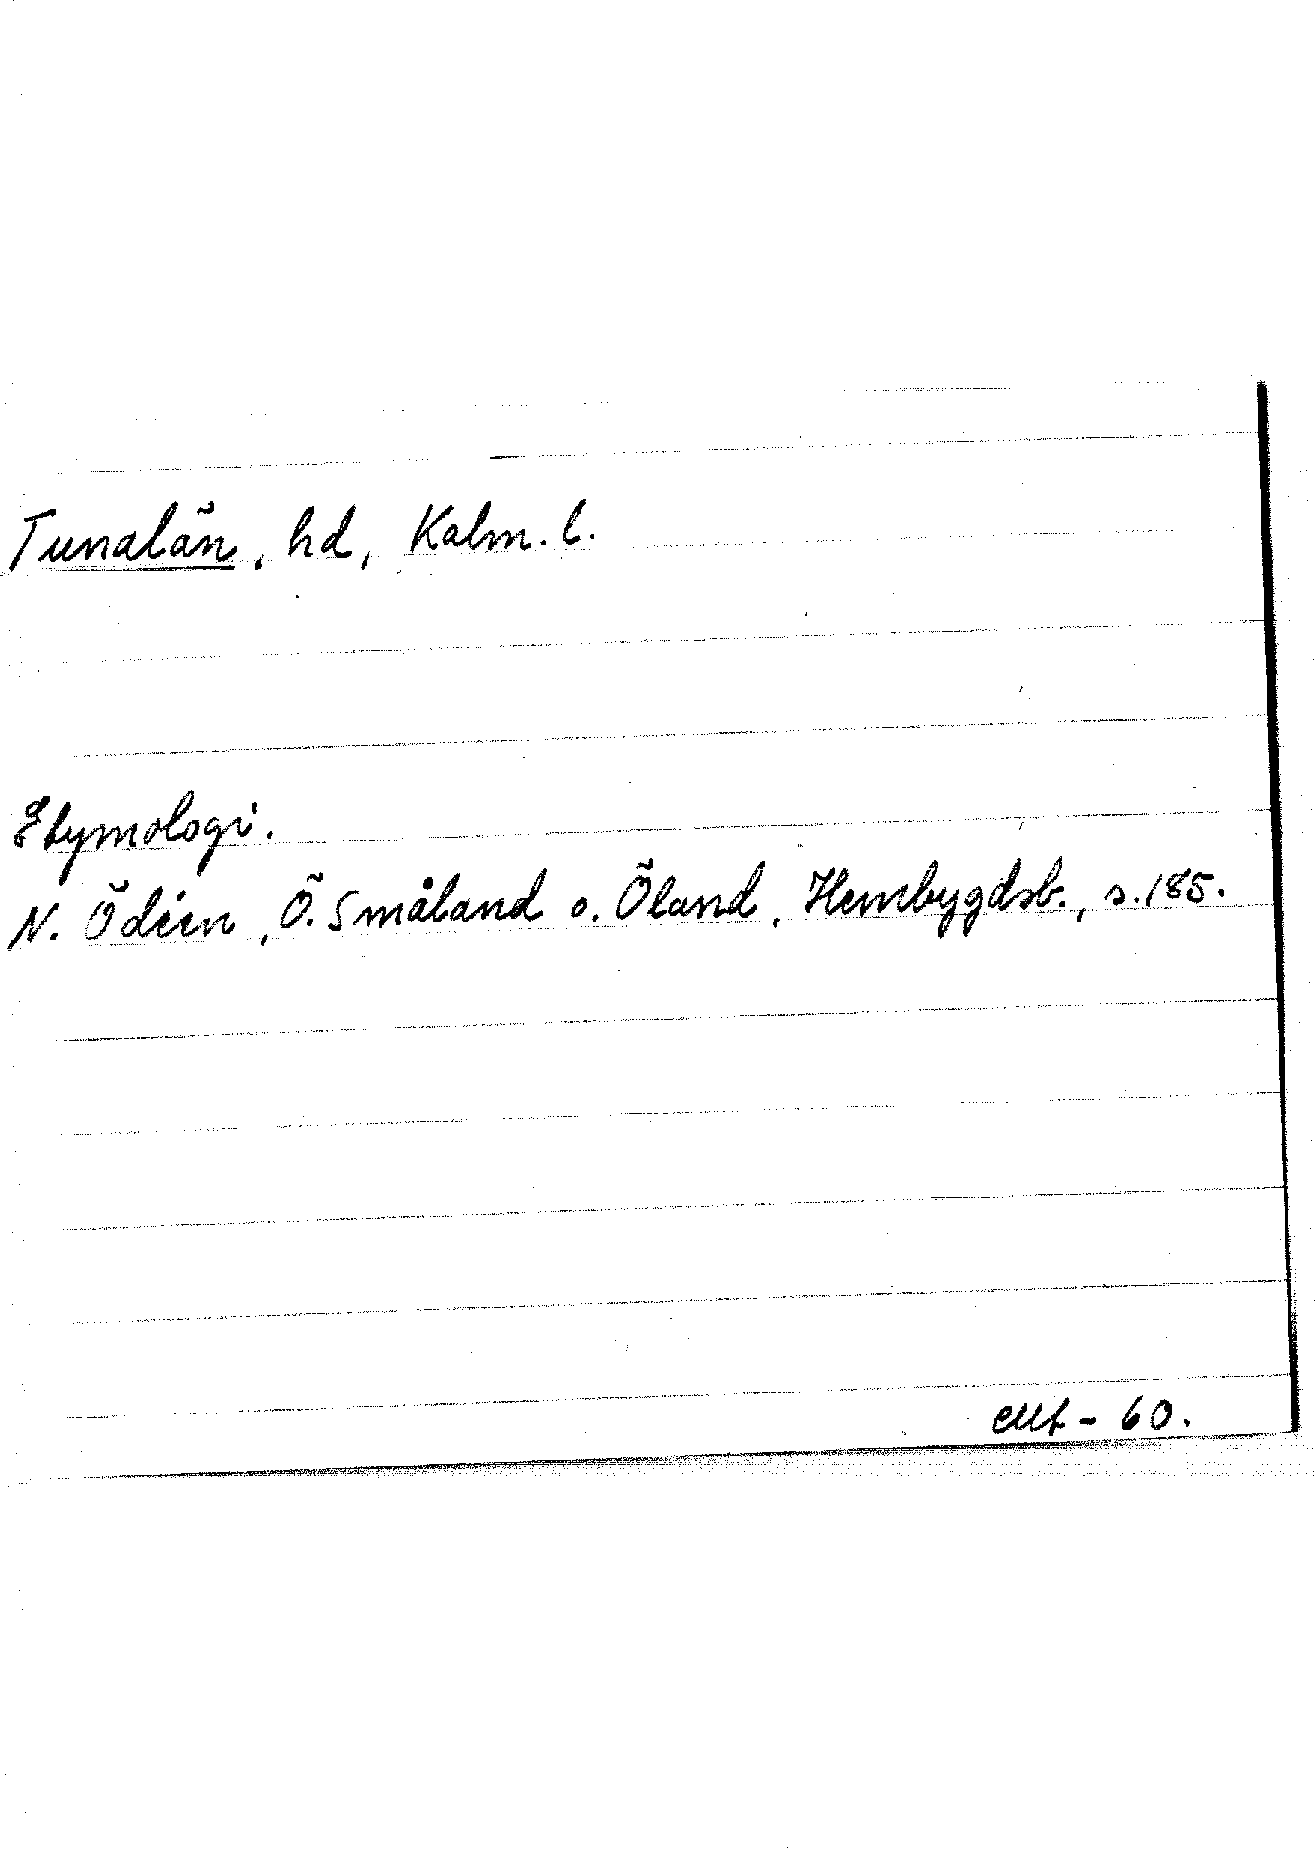 Tunalän, hd, Kalm. l.
Etymologi.
N. Ödéen, Ö. Småland o. Öland, Hembygdsb., s. 185.
- 60.